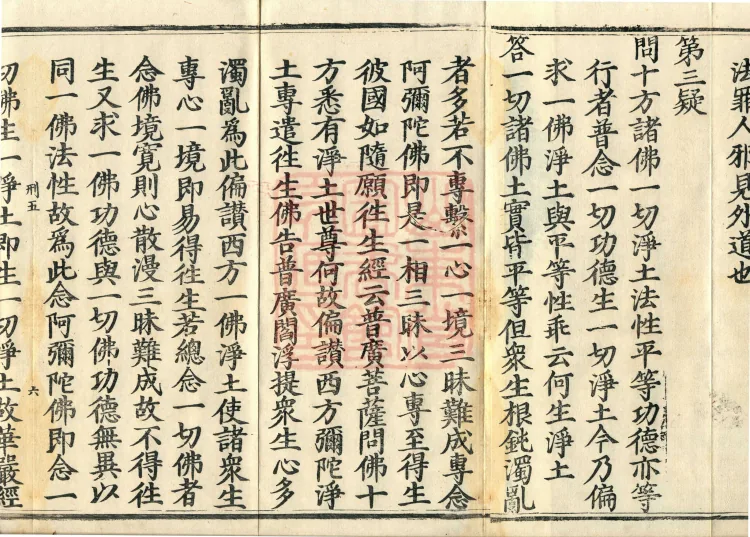 法罪人邪見外道也
第三疑
問十方諸佛一切淨土法性平等功德亦等
行者普念一切功德生一切淨土今乃偏
求一佛淨土與平等性乖云何生淨土
答一切諸佛土實皆平等但衆生根鈍濁亂
者多若不專繫一心一境三昧難成專念
阿彌陀佛即是一相三昧以心專至得生
彼國如隨願往生經云普廣菩薩問佛十
方悉有淨土世尊何故偏讚西方彌陀淨
土專遣往生佛告普廣閻浮提衆生心多
濁亂爲此偏讚西方一佛淨土使諸衆生
專心一境即易得往生若總念一切佛者
念佛境寬則心散漫三昧難成故不得往
生又求一佛功德與一切佛功德無異以
同一佛法性故爲此念阿彌陀佛即念一
刑五
六
切佛生一淨土即生一切淨土故華嚴經